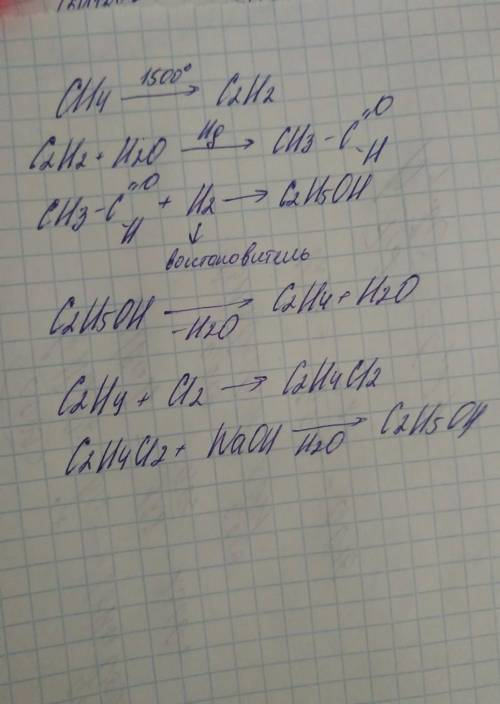 CH4 1500° → C2H2
C2H2 + H2O Hg → CH3 - C =O - H
CH3 - C =O H + H2 → C2H5OH
↓
востановитель
C2H5OH → -H2O C2H4 + H2O
C2H4 + Cl2 → C2H4Cl2
C2H4Cl2 + NaOH → H2O C2H5OH